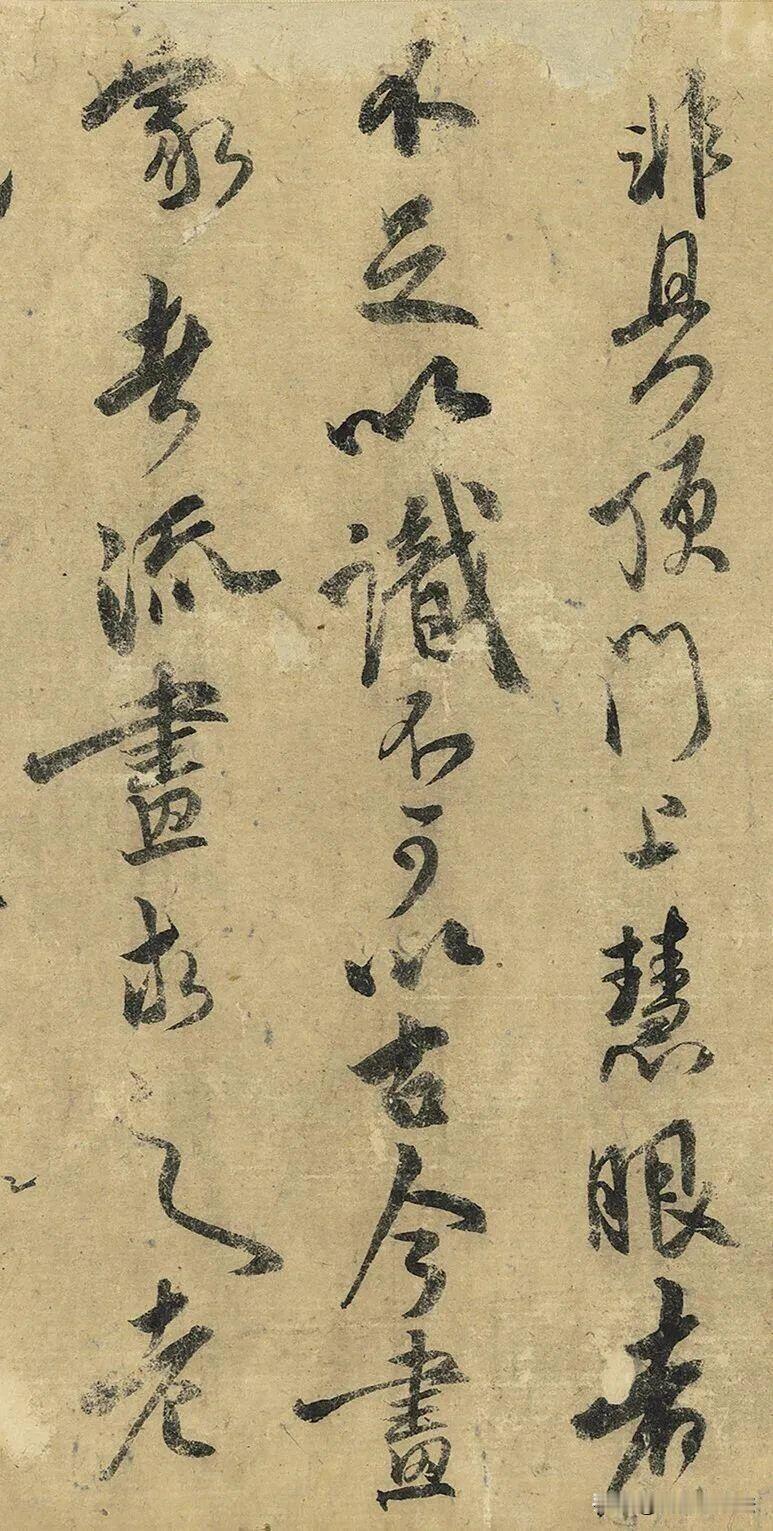 非具頂門上慧眼者
不足以識不可以古今畫
家者流畫求之老